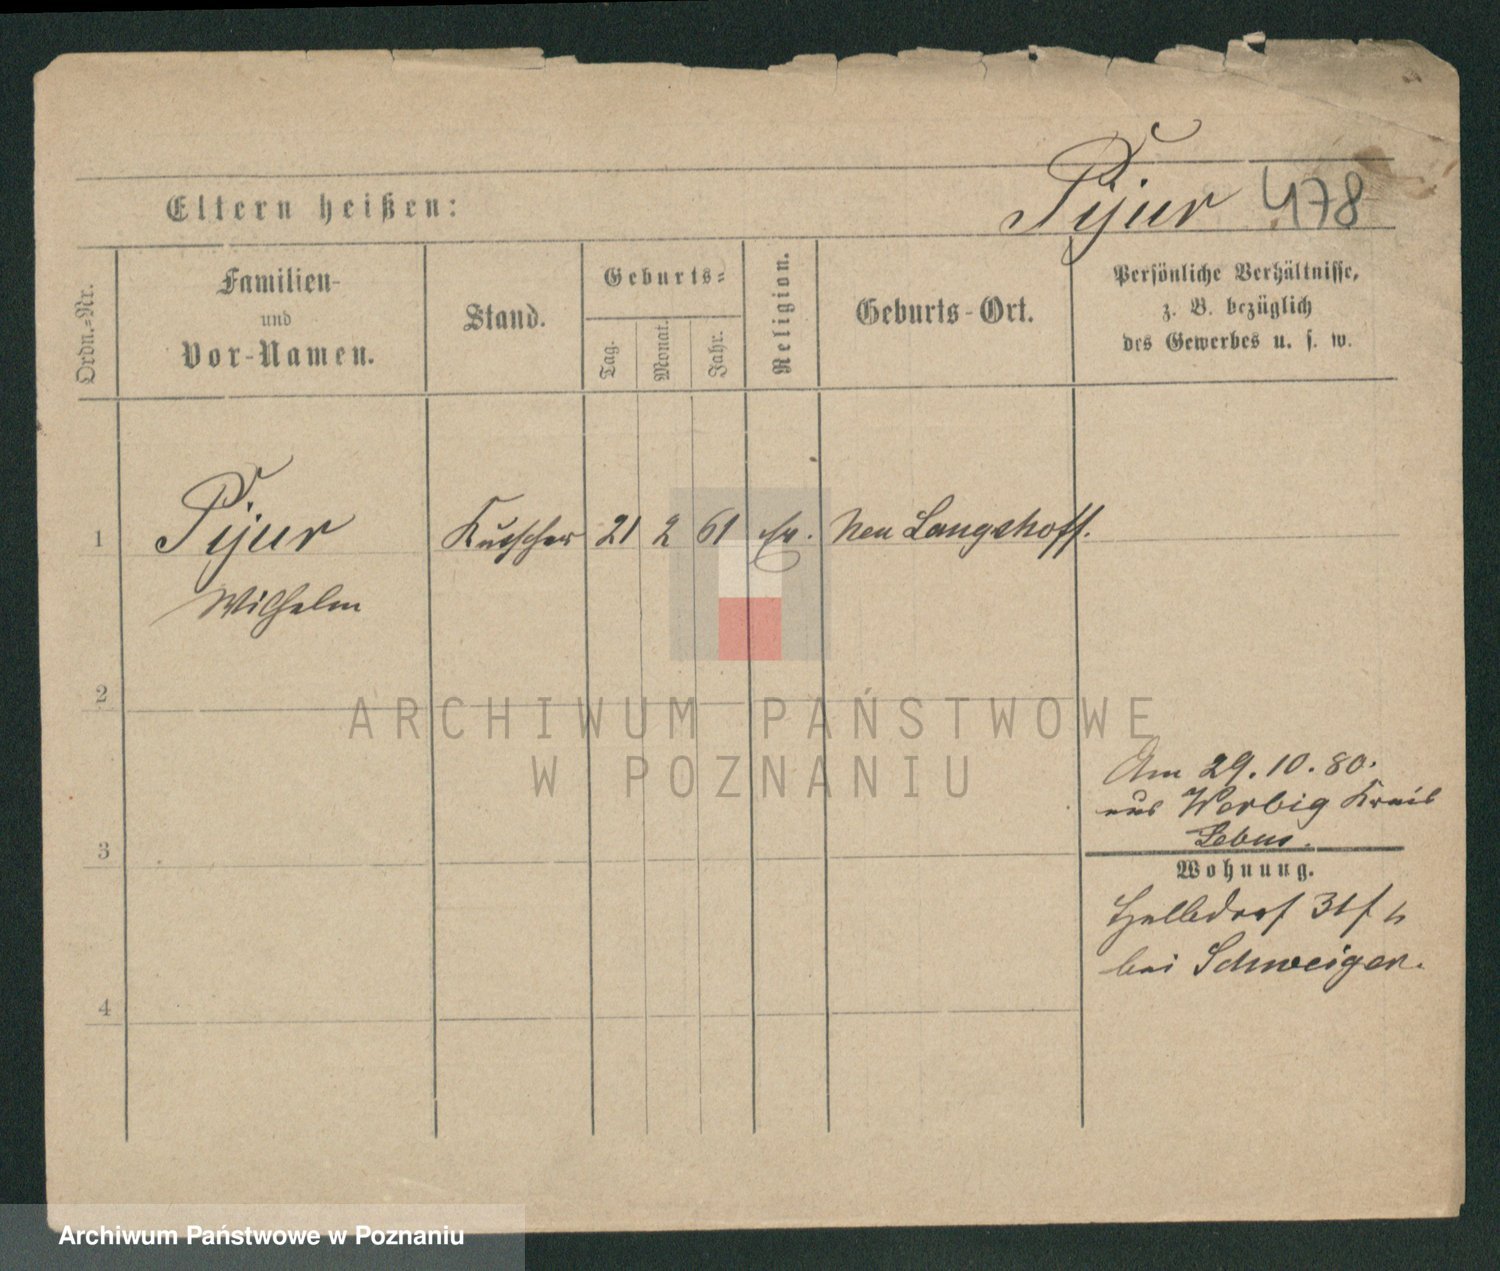 Pijur 478
Eltern heißen:
Ordn.-Nr.
Familien-
und
Vor-Namen.
Stand.
Geburts-
Tag.
Monat.
Jahr.
Religion.
Geburts-Ort.
Persönliche Verhältnisse,
z. B. bezüglich
des Gewerbes u. s. w.
1 Pijur Kutscher 21 2 61 ev. Neu Langshoff.
Wilhelm
2
ARCHIWUM PAŃSTWOWE
W POZNANIU
Am 29.10.80.
aus Werbig Kreis
3 Lebus.
Wohnung.
bei Schweiger.
4
Archiwum Państwowe w Poznaniu